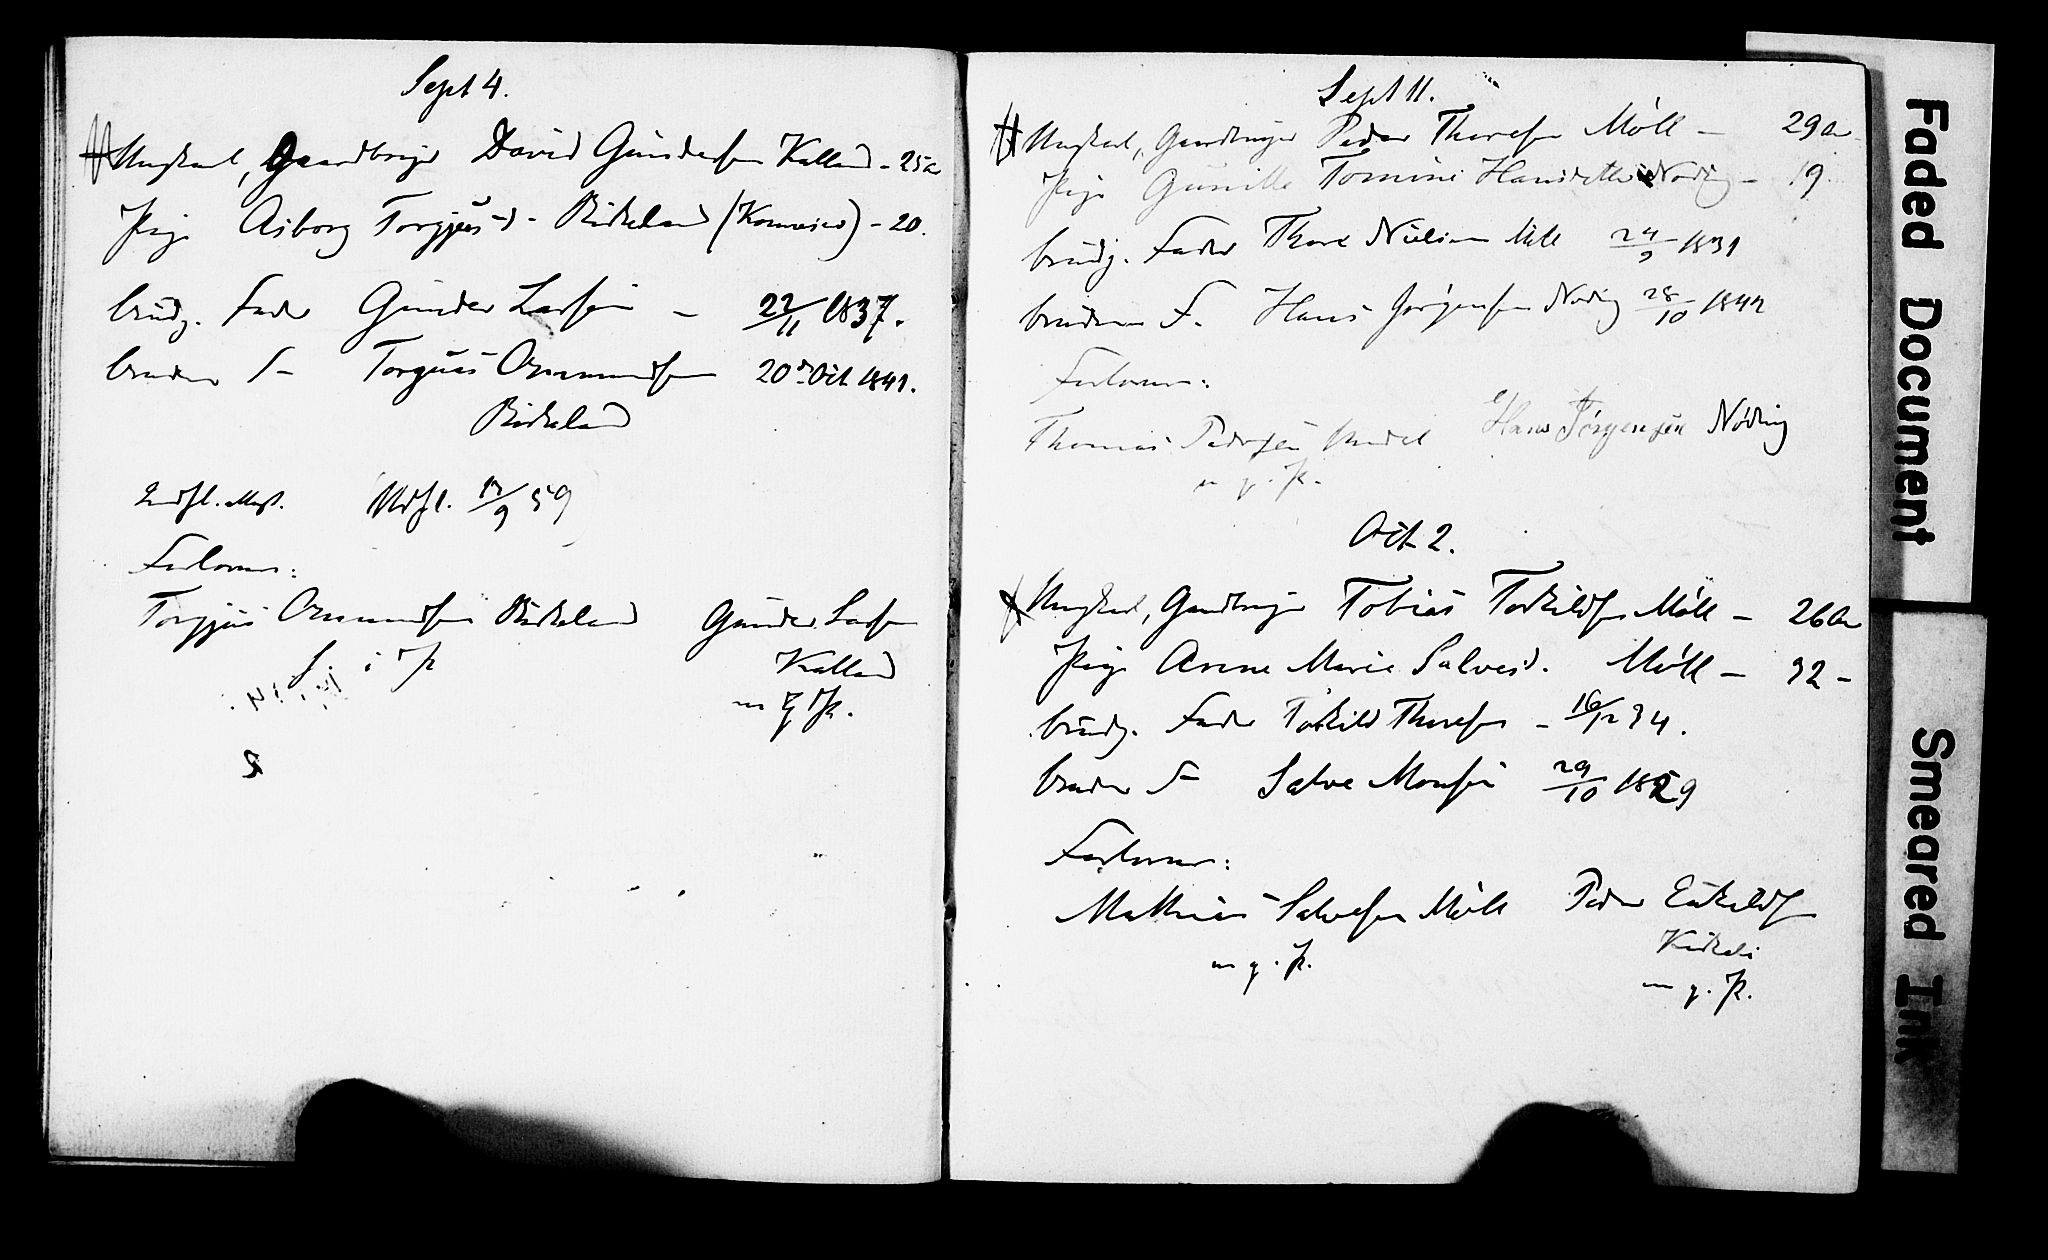 Sept 4.
Ungkarl, Gaardbruger David Gundersen Kalland - 25 a
Pige Asborg Torgjusd. - Birkeland (Konnesmo) - 20.
brudg. Fader Gunder Larsen - 22/11 1837.
brudens F - Torgius Omundsen 20de Oct 1841.
Birkeland
Indfl. Att. Udfl. 12/9 59
Forlovere:
Torgjus Omundsen Birkeland Gunder Larsen
i P Kalland
m. P.
Sept 11.
Ungkarl, Gaardbruger Peder Thoresen Møll - 29 Aar
Pige Gunille Tomine Hansdatter Nøding - 19.
brudg. Fader Thore Nielsen Møll 24/9 1831
brudens F. Hans Jørgensen Nøding 28/10 1842
Forlovere:
Thomas Pedersen Hans Jørgensen Nøding
m. p. P.
Oct 2.
Ungkarl, Gaardbruger Tobias Torkildsen Møll - 26 Aar
Pige Anne Marie Salvesd. Møll - 32 -
brudg. Fader Torkild Thoresen - 16/12 34.
bruden F Salve Monsen 29/10 1829
Forlovere:
Mathias Salvesen Møll Peder Eskildsen
m. p. P.
m. p. P.
Faded Document
Smeared Ink